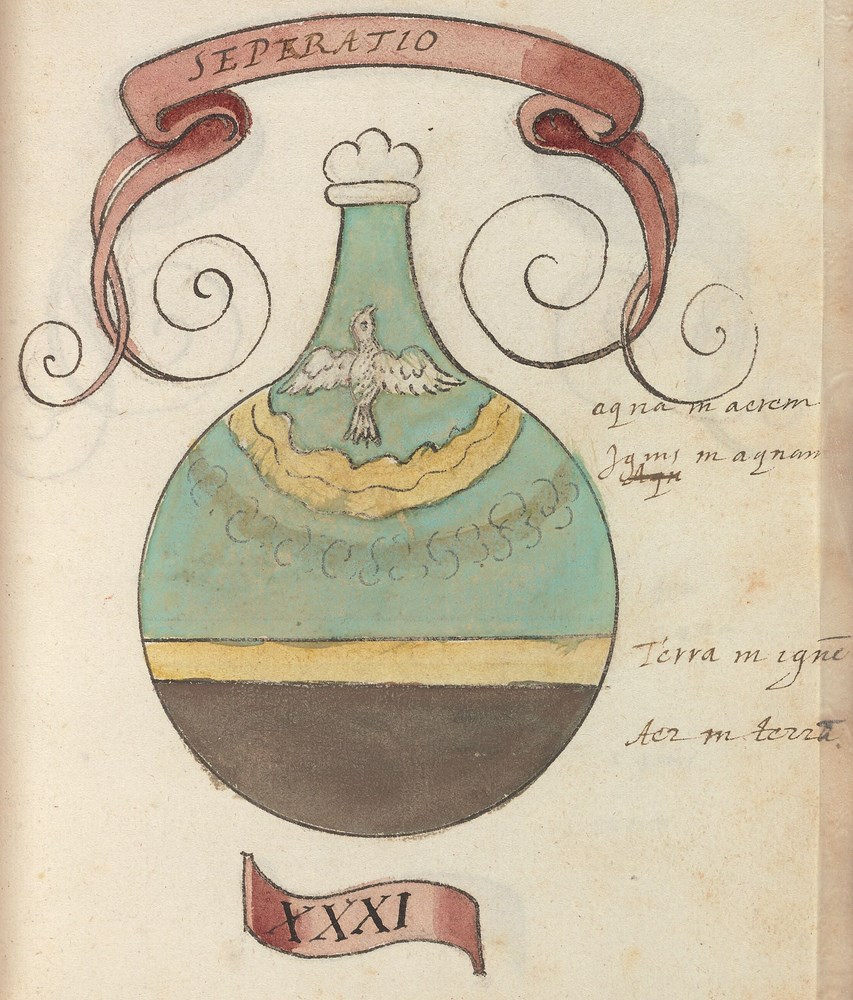 SEPERATIO
aqua in aerem
Ignis in aquam
Aqu
Terra in igne̅
Aer in terra̅
XXXI